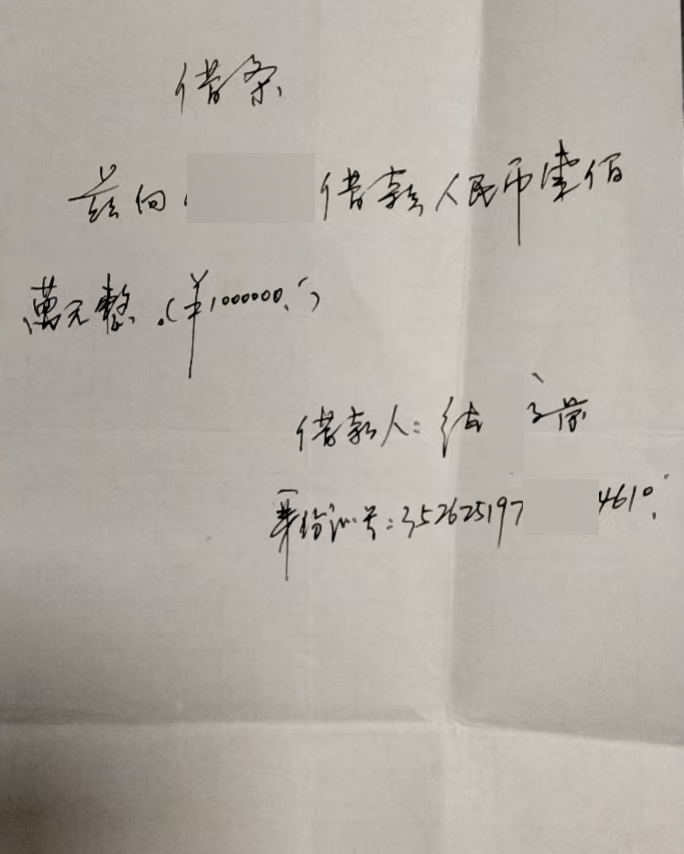 借条
兹向 借款人民币壹佰
萬元整.(¥1000000.)
借款人:
身份证号:352625197 4610